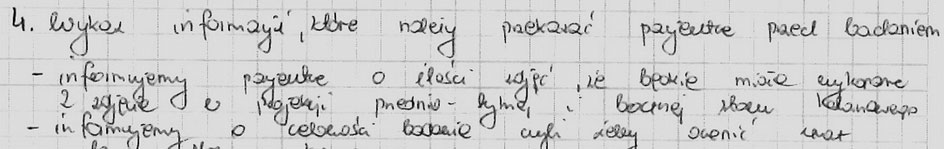 4. Wykaz informacji, które należy przekazać pacjentce przed badaniem
- informujemy pacjentkę o ilości zdjęć, że będzie miała wykonane
2 zdjęcia w projekcji przednio-tylnej i bocznej stawu kolanowego
- informujemy o celowości badania czyli żeby ocenić